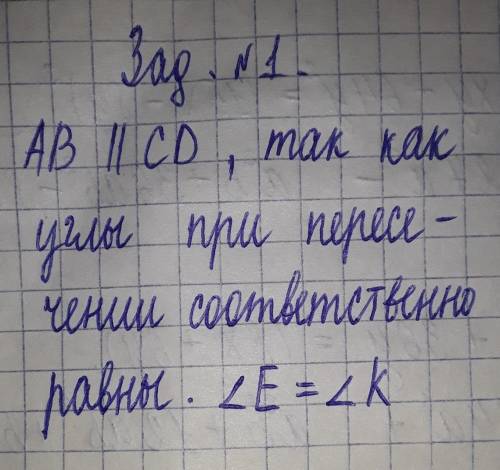 Зад. №1.
AB || CD, так как
углы при пересе-
чении соответственно
равны. ∠E = ∠K